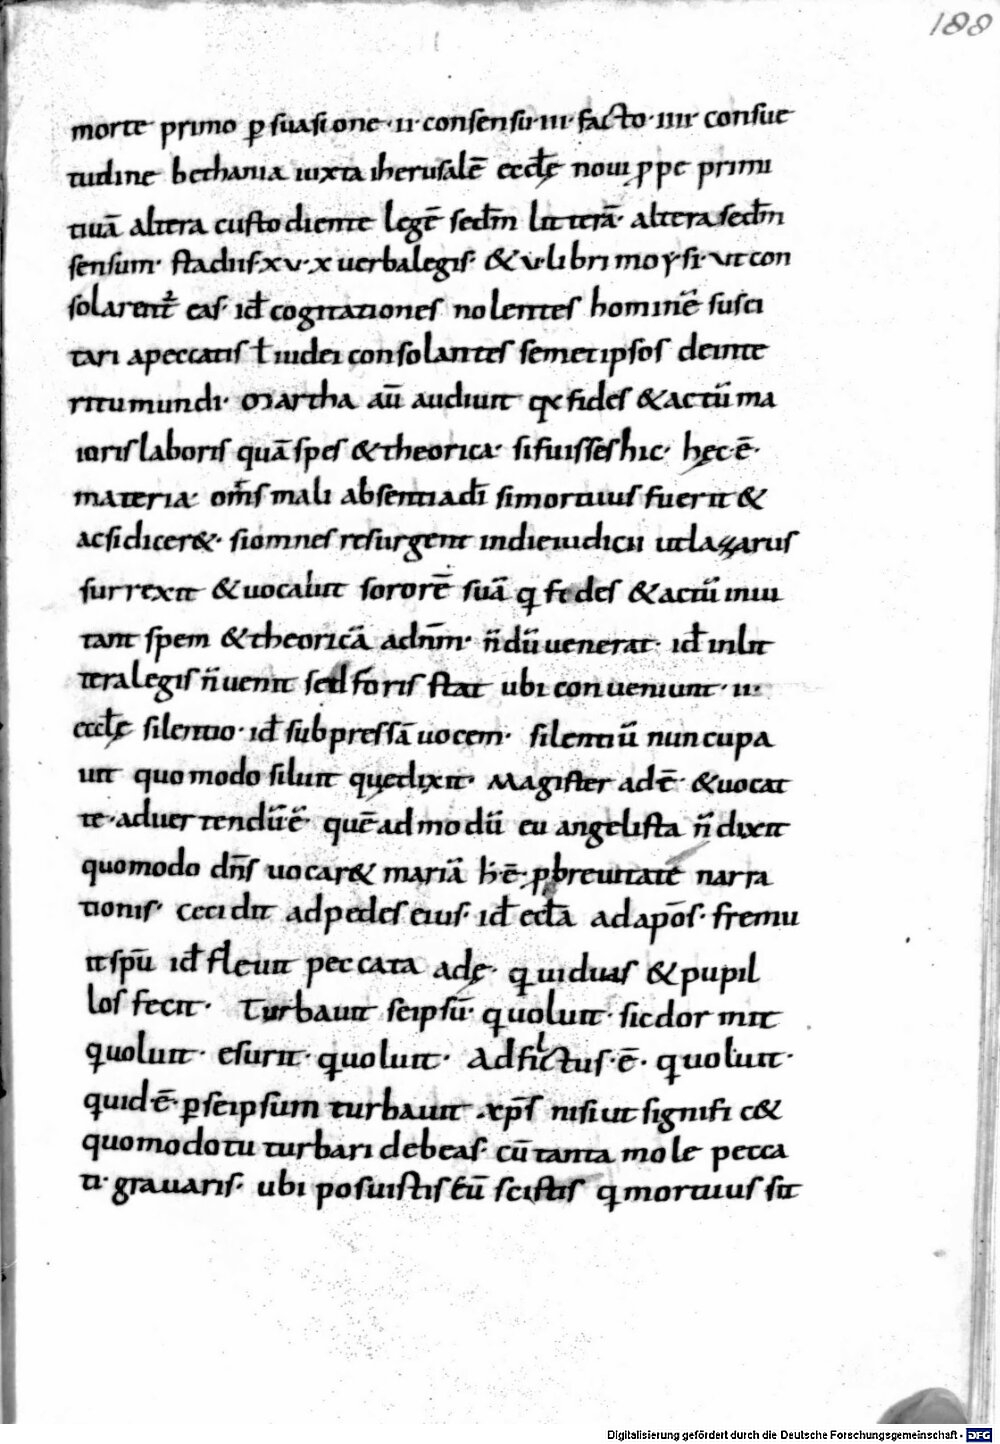 188
morte primo p̱ suasione · ii · consensu · iii · facto · iiii · consue
tudine bethania iuxta iherusalē eccl̄ę noui p̱pe primi
tiuā altera custodiente legē sed̄m litterā · altera sed̄m
sensum · stadiis · xv · x uerba legis · & v · libri moysi · ut con
solarent᷑ eas · id̄ cogitationes nolentes hominē susci
tari a peccatis ł iudei consolantes semetipsos de inte
ritu mundi · Martha aū audiuit q̄ fides & actū ma
ioris laboris quā spes & theorica · si fuisses hic · hęc · ē ·
materia · om̄s mali absentia dī si mortuus fuerit &
ac si dicer& · si omnes resurgent in die iudicii ut lazarus
surrexit & uocauit sororē suā q fides & actū inui
tant spem & theoricā ad nm̄ · n̄dū uenerat · id̄ in lit
tera legis n̄ uenit sed foris stat ubi conueniunt · ii ·
eccl̄ę silentio · id̄ subpressā uocem · silentiū nuncupa
uit quomodo siluit quę dixit · Magister adē · & uocat
te · aduertendū ē · quēadmodū euangelista n̄ dixit
quomodo dn̄s uocar& mariā h̄ ē · p̱ breuitatē narra
tionis · cecidit ad pedes eius · id̄ eccl̄a ad apōs · fremu
it spū id̄ fleuit peccata adę · q uiduas & pupil
los fecit · Turbauit seipsū · quoluit · sic dormit
quoluit · esurit · quoluit · Adflictus · ē · quoluit ·
quid ē · p̱ seipsum turbauit xp̄s nisi ut signific&
quomodo tu turbari debeas · cū tanta mole pecca
ti · grauaris · ubi posuistis eū scistis q mortuus sit
Digitalisierung gefördert durch die Deutsche Forschungsgemeinschaft · DFG